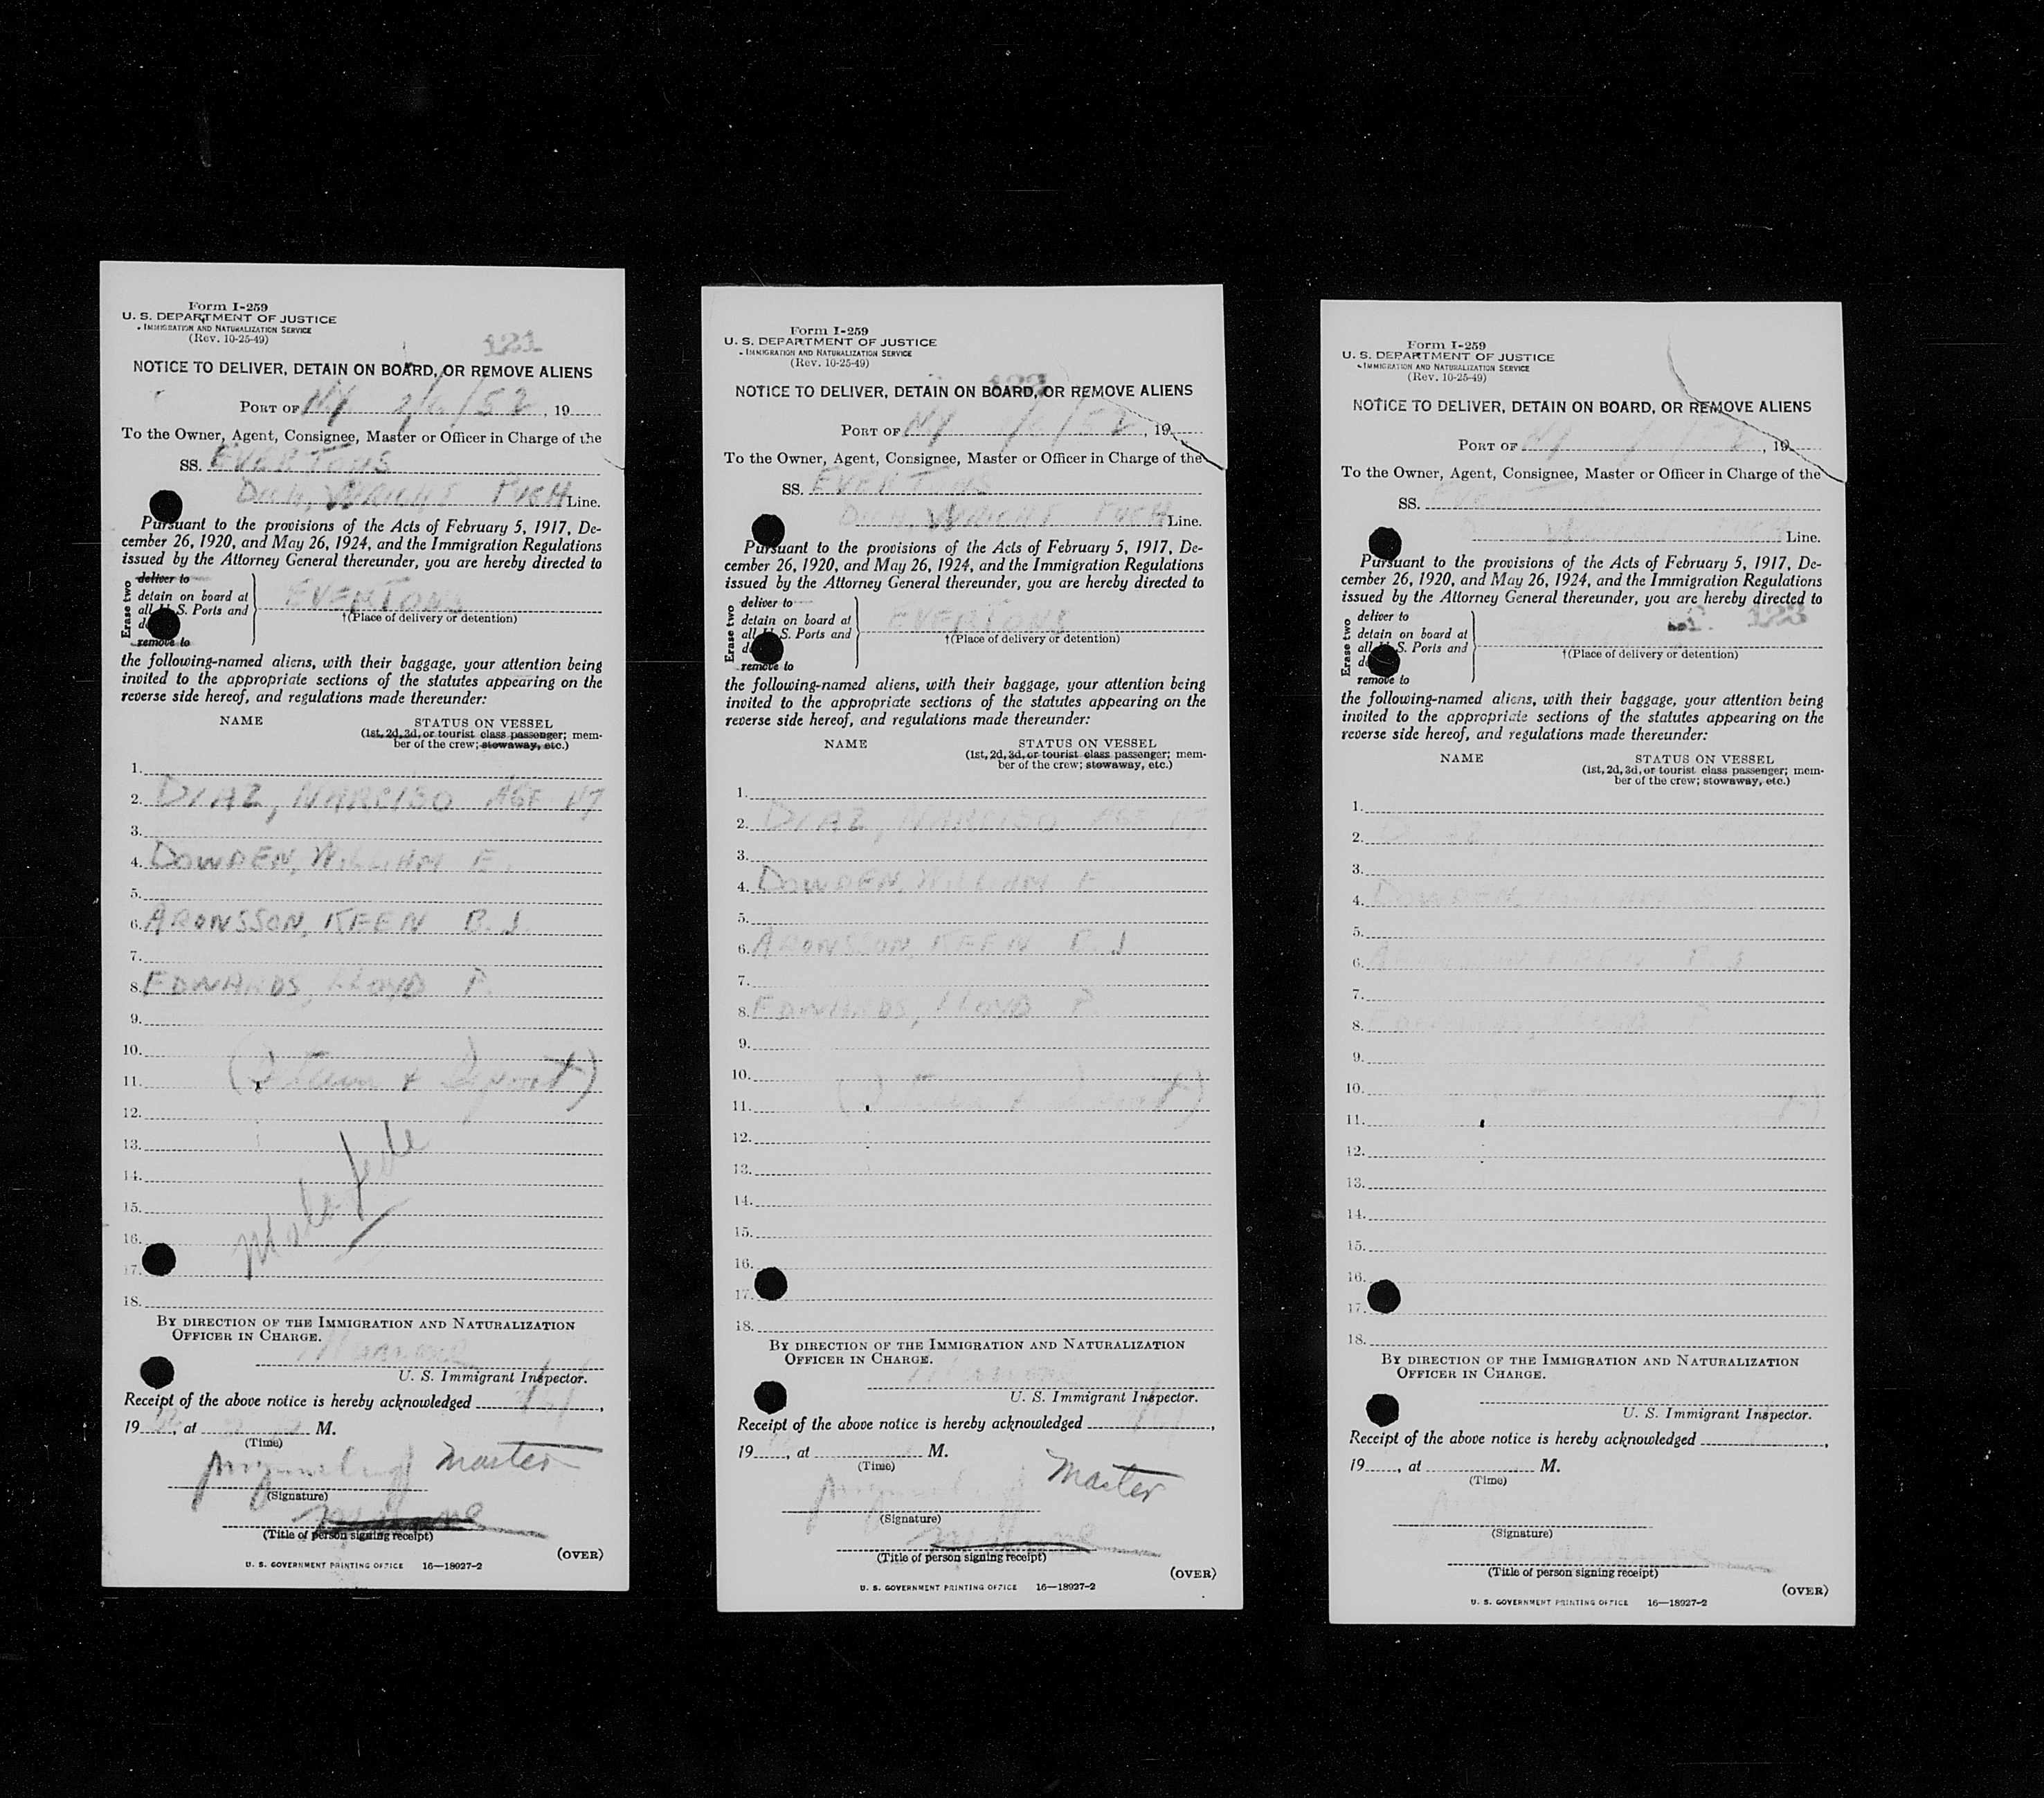 Form I-259
U. S. DEPARTMENT OF JUSTICE
IMMIGRATION AND NATURALIZATION SERVICE
(Rev. 10-25-49)
121
NOTICE TO DELIVER, DETAIN ON BOARD, OR REMOVE ALIENS
PORT OF NY 2/6/52, 19
To the Owner, Agent, Consignee, Master or Officer in Charge of the
SS. EVERTONS
WRIGHT PUGH Line.
Pursuant to the provisions of the Acts of February 5, 1917, De-
cember 26, 1920, and May 26, 1924, and the Immigration Regulations
issued by the Attorney General thereunder, you are hereby directed to
Erase two
deliver to
detain on board at
all U. S. Ports and
remove to
EVERTONS
†(Place of delivery or detention)
the following-named aliens, with their baggage, your attention being
invited to the appropriate sections of the statutes appearing on the
reverse side hereof, and regulations made thereunder:
NAME STATUS ON VESSEL
(1st, 2d, 3d, or tourist class passenger; mem-
ber of the crew; stowaway, etc.)
1.
2. DIAZ, NARCISO AGE 47
3.
4. DOWDEN, WILLIAM E.
5.
6. ARONSSON, KEEN B. J.
7.
8. EDWARDS, LLOYD P.
9.
10.
11. (Detain & Deport)
12.
13.
14.
15.
16.
17.
18.
Mala fide
BY DIRECTION OF THE IMMIGRATION AND NATURALIZATION
OFFICER IN CHARGE.
U. S. Immigrant Inspector.
Receipt of the above notice is hereby acknowledged
19 , at M.
(Time)
Master
(Signature)
(Title of person signing receipt)
(OVER)
U. S. GOVERNMENT PRINTING OFFICE 16—18027-2
Form I-259
U. S. DEPARTMENT OF JUSTICE
IMMIGRATION AND NATURALIZATION SERVICE
(Rev. 10-25-49)
NOTICE TO DELIVER, DETAIN ON BOARD, OR REMOVE ALIENS
PORT OF NY /6/52, 19
To the Owner, Agent, Consignee, Master or Officer in Charge of the
SS. EVERTONS
WRIGHT PUGH Line.
Pursuant to the provisions of the Acts of February 5, 1917, De-
cember 26, 1920, and May 26, 1924, and the Immigration Regulations
issued by the Attorney General thereunder, you are hereby directed to
Erase two
deliver to
detain on board at
all U. S. Ports and
remove to
EVERTONS
†(Place of delivery or detention)
the following-named aliens, with their baggage, your attention being
invited to the appropriate sections of the statutes appearing on the
reverse side hereof, and regulations made thereunder:
NAME STATUS ON VESSEL
(1st, 2d, 3d, or tourist class passenger; mem-
ber of the crew; stowaway, etc.)
1.
2. DIAZ, NARCISO AGE 47
3.
4. DOWDEN, WILLIAM E
5.
6. ARONSSON, KEEN B. J
7.
8. EDWARDS, LLOYD P.
9.
10.
11. (Detain & Deport)
12.
13.
14.
15.
16.
17.
18.
BY DIRECTION OF THE IMMIGRATION AND NATURALIZATION
OFFICER IN CHARGE.
U. S. Immigrant Inspector.
Receipt of the above notice is hereby acknowledged
19 , at M.
(Time)
Master
(Signature)
(Title of person signing receipt)
(OVER)
U. S. GOVERNMENT PRINTING OFFICE 16—18027-2
Form I-259
U. S. DEPARTMENT OF JUSTICE
IMMIGRATION AND NATURALIZATION SERVICE
(Rev. 10-25-49)
NOTICE TO DELIVER, DETAIN ON BOARD, OR REMOVE ALIENS
PORT OF NY , 19
To the Owner, Agent, Consignee, Master or Officer in Charge of the
SS.
Line.
Pursuant to the provisions of the Acts of February 5, 1917, De-
cember 26, 1920, and May 26, 1924, and the Immigration Regulations
issued by the Attorney General thereunder, you are hereby directed to
Erase two
deliver to
detain on board at
all U. S. Ports and
remove to
123
†(Place of delivery or detention)
the following-named aliens, with their baggage, your attention being
invited to the appropriate sections of the statutes appearing on the
reverse side hereof, and regulations made thereunder:
NAME STATUS ON VESSEL
(1st, 2d, 3d, or tourist class passenger; mem-
ber of the crew; stowaway, etc.)
1.
2.
3.
4. DOWDEN, WILLIAM E
5.
6.
7.
8.
9.
10.
11.
12.
13.
14.
15.
16.
17.
18.
BY DIRECTION OF THE IMMIGRATION AND NATURALIZATION
OFFICER IN CHARGE.
U. S. Immigrant Inspector.
Receipt of the above notice is hereby acknowledged
19 , at M.
(Time)
(Signature)
(Title of person signing receipt)
(OVER)
U. S. GOVERNMENT PRINTING OFFICE 16—18027-2